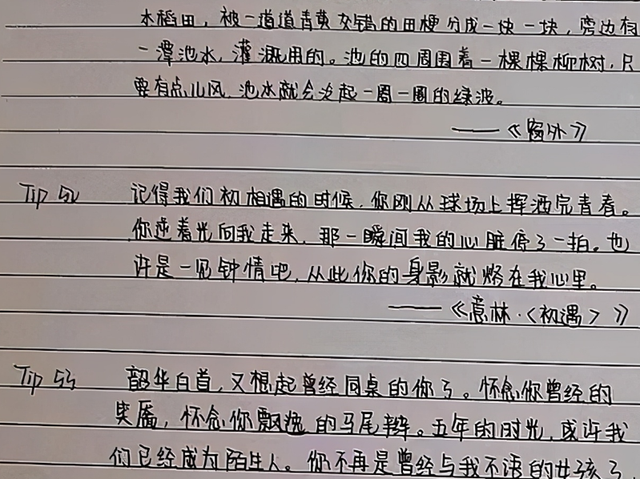 水稻田，被一道道青黄交错的田梗分成一块一块，旁边有
一潭池水，灌溉用的。池的四周围着一棵棵柳树，只
要有点儿风，池水就会泛起一圈一圈的绿波。
——《窗外》
Tip 52 记得我们初相遇的时候，你刚从球场上挥洒完青春。
你逆着光向我走来，那一瞬间我的心脏停了一拍。也
许是一见钟情吧，从此你的身影就烙在我心里。
——《意林·〈初遇〉》
Tip 53 韶华白首，又想起曾经同桌的你了。怀念你曾经的
笑靥，怀念你飘逸的马尾辫。五年的时光，或许我
们已经成为陌生人。你不再是曾经与我不语的女孩了，